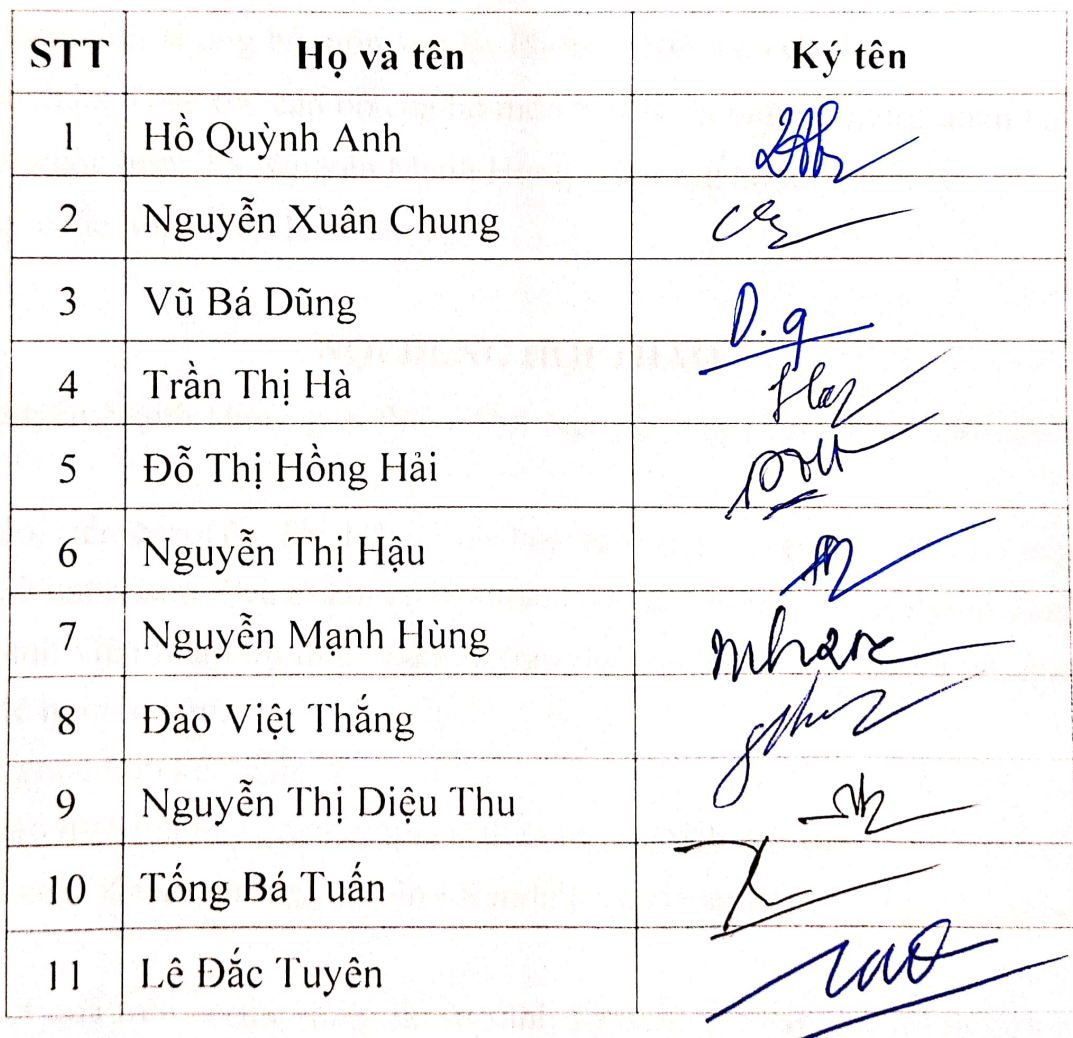 STT Họ và tên Ký tên
1 Hồ Quỳnh Anh
2 Nguyễn Xuân Chung
3 Vũ Bá Dũng D.g
4 Trần Thị Hà
5 Đỗ Thị Hồng Hải
6 Nguyễn Thị Hậu
7 Nguyễn Mạnh Hùng
8 Đào Việt Thắng
9 Nguyễn Thị Diệu Thu
10 Tống Bá Tuấn
11 Lê Đắc Tuyên